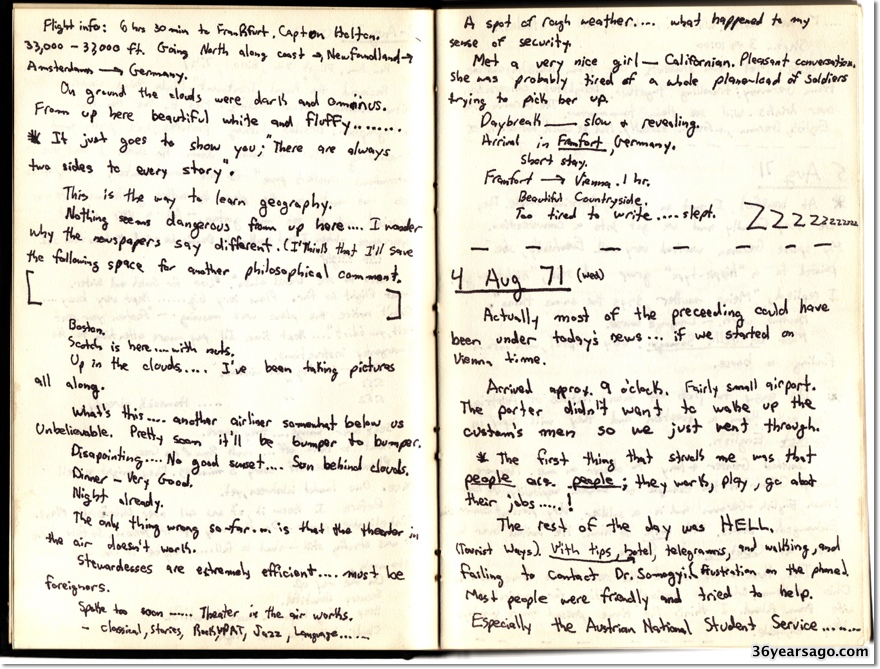 Flight info: 6 hrs 30 min to Frankfurt. Capton Holton.
33,000 - 37,000 ft. Going North along coast → Newfoundland →
Amsterdam → Germany.
On ground the clouds were dark and ominus.
From up here beautiful white and fluffy........
* It just goes to show you; "There are always
two sides to every story".
This is the way to learn geography.
Nothing seems dangerous from up here.... I wonder
why the newspapers say different. (I think that I'll save
the following space for another philosophical comment.
[
]
Boston.
Scotch is here.... with nuts.
Up in the clouds..... I've been taking pictures
all along.
What's this.... another airliner somewhat below us
Unbelievable. Pretty soon it'll be bumper to bumper.
Disapointing.... No good sunset.... Sun behind clouds.
Dinner - Very Good.
Night already.
The only thing wrong so-far... is that the theater in
the air doesn't work.
Stewardesses are extremely efficient.... must be
foreigners.
Spoke too soon ...... Theater in the air works.
- classical, Stories, Rock, Jazz, Language......
A spot of rough weather.... what happened to my
sense of security.
Met a very nice girl — Californian. Pleasant conversation.
She was probably tired of a whole plane-load of soldiers
trying to pick her up.
Daybreak — slow & revealing.
Arrival in Franfort, Germany.
Short stay.
Franfort → Vienna. 1 hr.
Beautiful Countryside.
Too tired to write..... slept. ZZZZZZZZZZZ
4 Aug 71 (wed)
Actually most of the preceeding could have
been under today's news... if we started on
Vienna time.
Arrived approx. 9 o'clock. Fairly small airport.
The porter didn't want to wake up the
custom's men so we just went through.
* The first thing that struck me was that
people are people; they work, play, go about
their jobs.....!
The rest of the day was HELL.
(Tourist Ways). With tips, hotel, telegramms, and walking, and
failing to contact Dr. Somogyi. (frustration on the phone).
Most people were friendly and tried to help.
Especially the Austrian National Student Service........
5 Aug 71
36yearsago.com